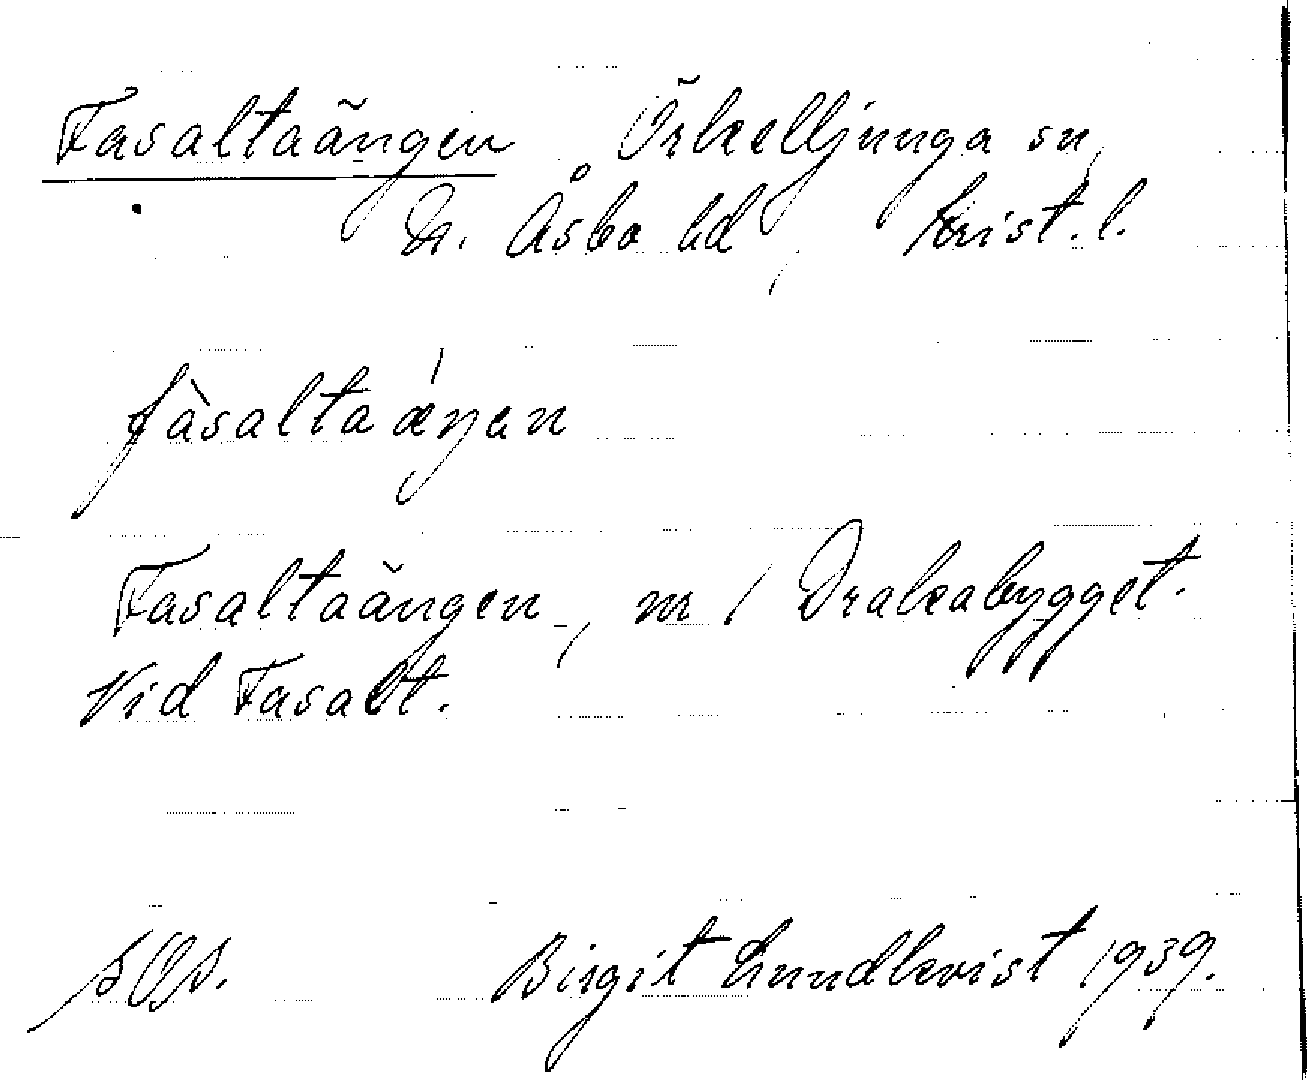 Fasaltaängen Örkelljunga sn,
N. Åsbo hd, Krist. l.
fàsaltaǽŋen
Fasaltaängen, m / Drakabygget.
Vid Fasalt.
Birgit Lundkvist 1939.